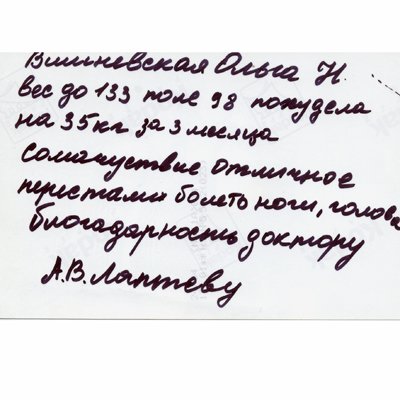 Вишневская Ольга Н.
вес до 133 после 98 похудела
на 35кг за 3 месяца
самочуствие отличное
перестали болеть ноги, голова
благодарность доктору
А.В. Лаптеву